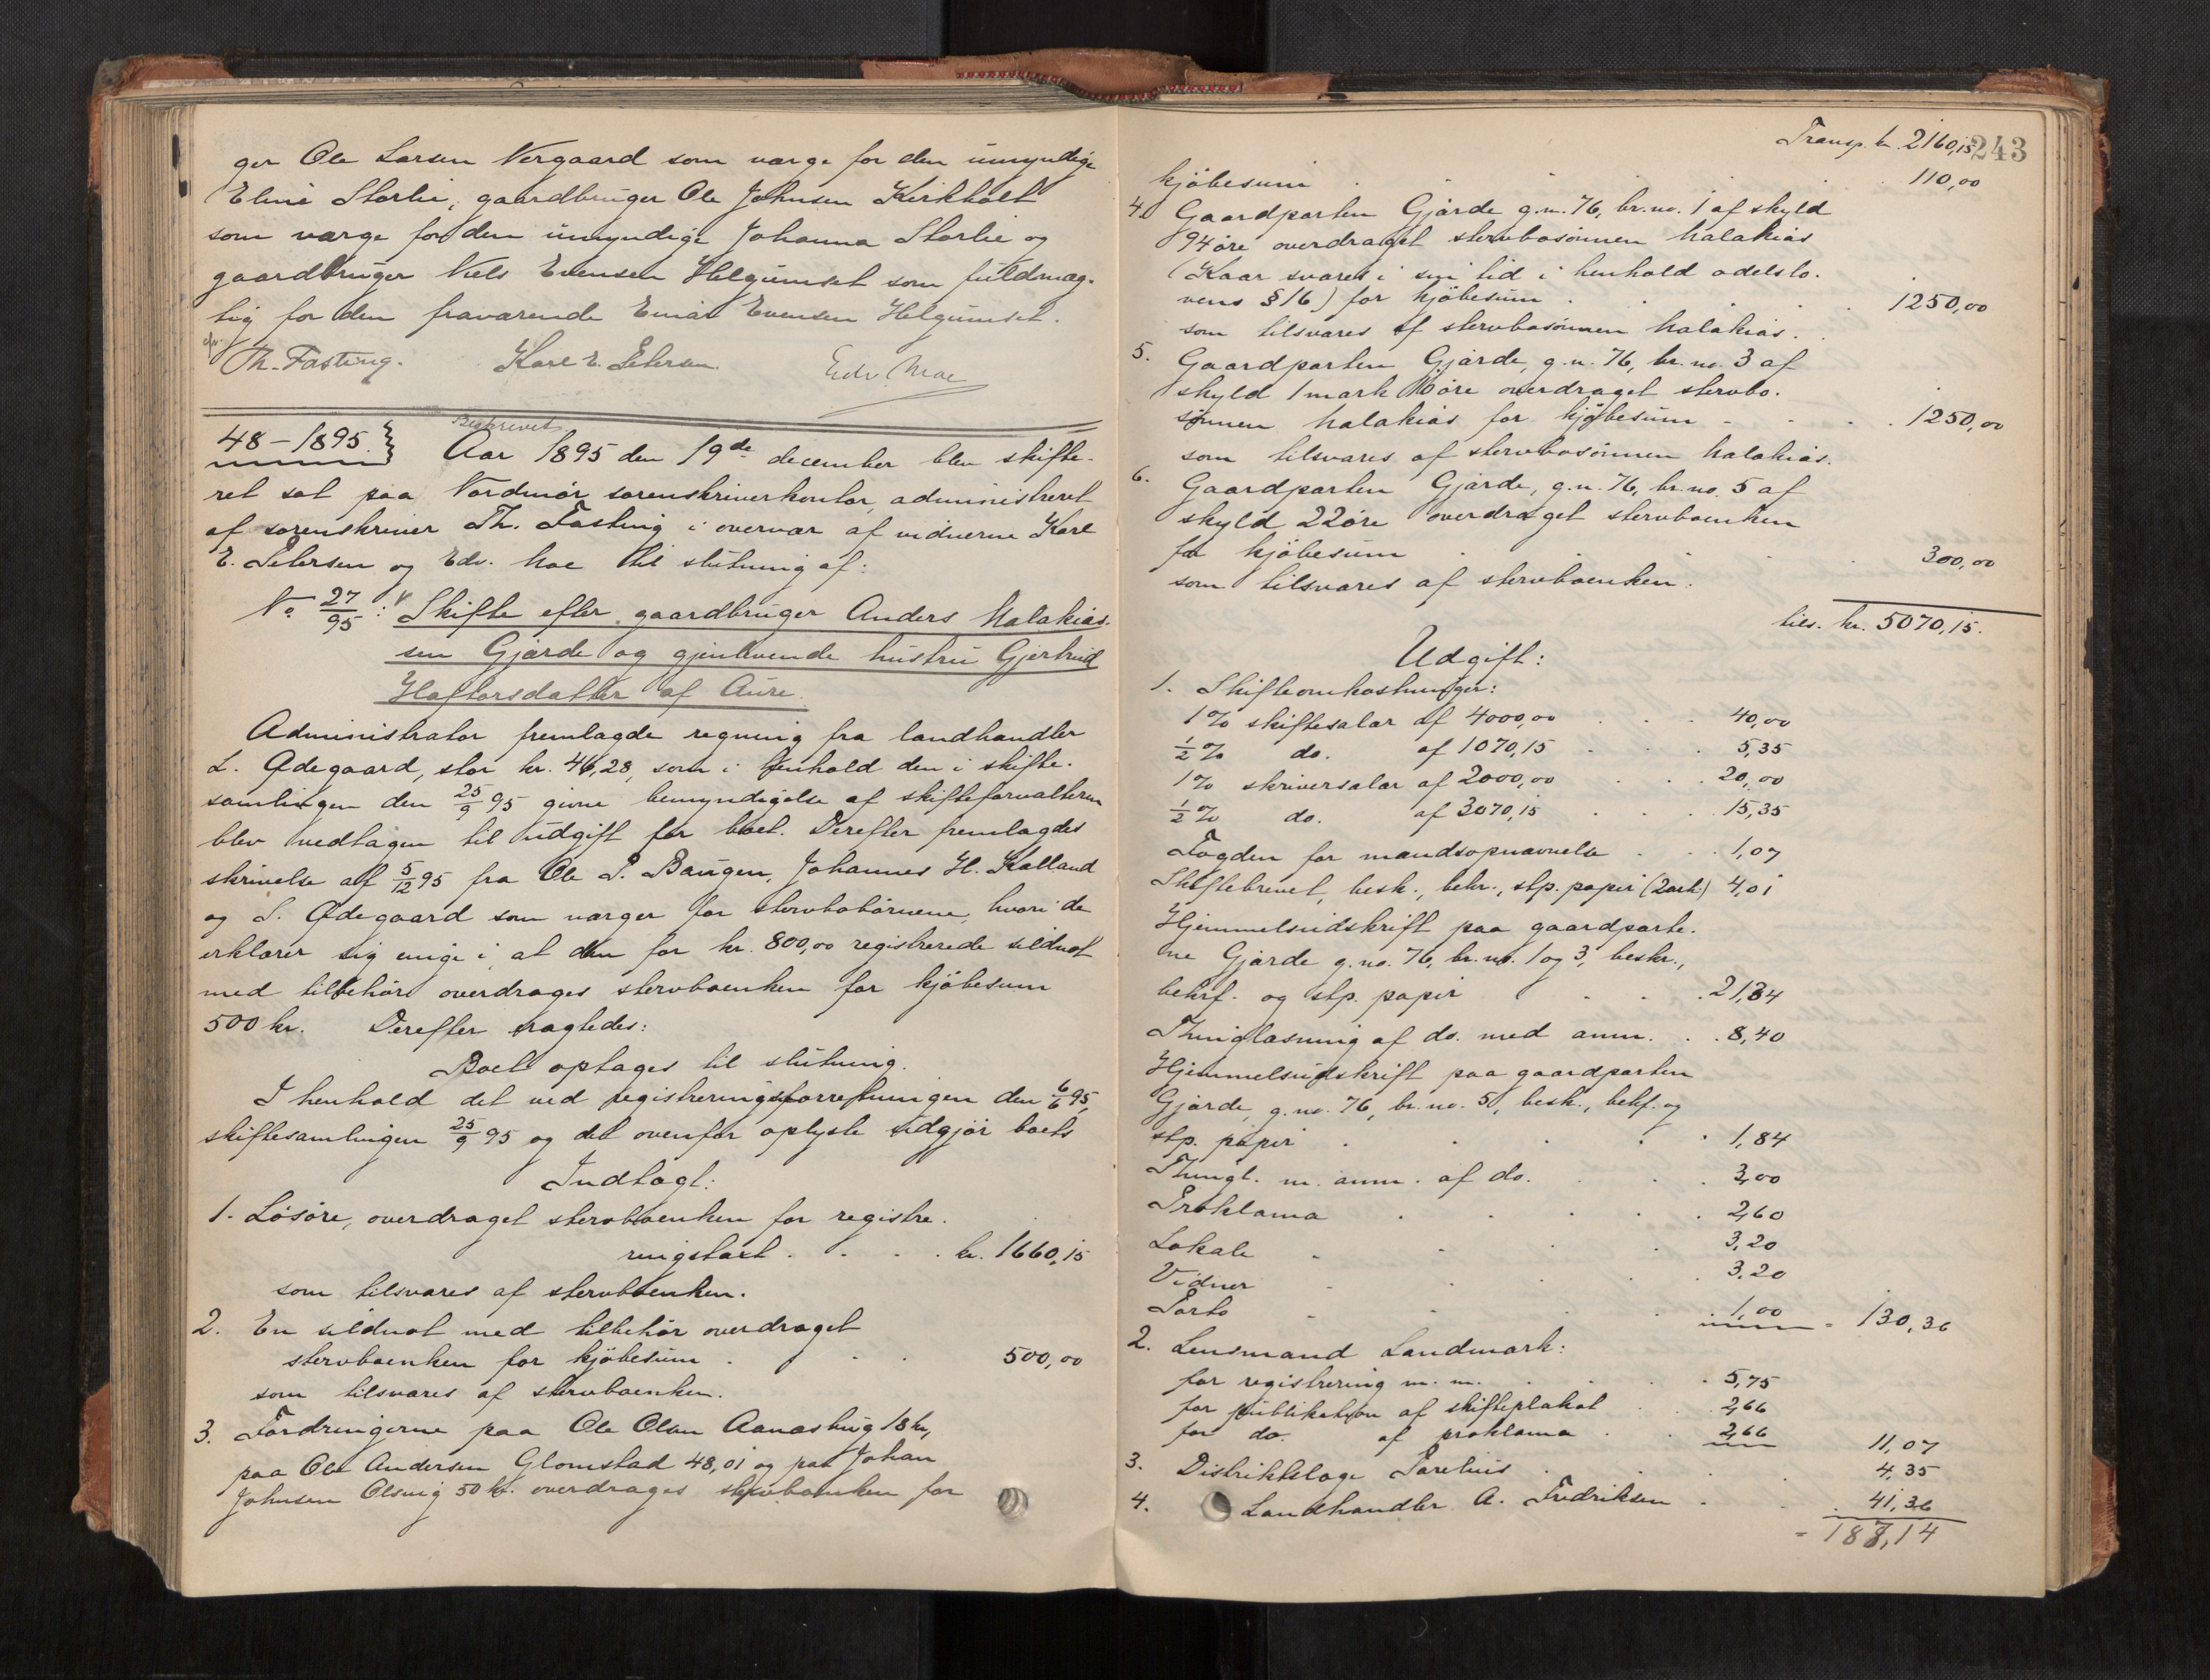 ger Ole Larsen Vergaard som værge for den umyndige
Eline Storlie, gaardbruger Ole Johnsen Kirkholt
som værge for den umyndige Johanna Storlie og
gaardbruger Nels Evensen Helgumset som fuldmæg-
tig for den fraværende Einar Evensen Helgumset.
Th. Fasting. Karl E. Petersen Edv. Moe
48-1895. Beskrevet Aar 1895 den 19de december blev skifte-
ret sat paa Nordmør sorenskriverkontor, administreret
af sorenskriver Th. Fasting i overvær af vidnerne Karl
E. Petersen og Edv. Moe til slutning af:
No 27/95: Skifte efter gaardbruger Anders Malakias-
sen Gjærde og gjenlevende hustru Gjertrud
Haftorsdatter af Aure.
Administrator fremlagde regning fra landhandler
L. Ødegaard, stor kr. 46,28, som i henhold den i skifte-
samlingen den 25/9 95 givne bemyndigelse af skifteforvalteren
blev vedtagen til udgift for boet. Derefter fremlagdes
skrivelse af 5/12 95 fra Ole P. Baugen, Johannes H. Kalland
og L. Ødegaard som værger for stervbobørnene, hvori de
erklærer sig enige i, at den for kr. 800,00 registrerede sildnot
med tilbehør overdrages stervboenken for kjøbesum
500 kr. Derefter sagtedes:
Boet optages til slutning.
I henhold det ved registreringsforretningen den 6/6 95,
skiftesamlingen 25/9 95 og det ovenfor oplyste udgjør boets
Indtægt:
1. Løsøre, overdraget stervboenken for registre-
ringstaxt . . . . kr. 1660,15
som tilsvares af stervboenken.
2. En sildnot med tilbehør overdraget
stervboenken for kjøbesum . . . 500,00
som tilsvares af stervboenken.
3. Fordringerne paa Ole Olsen Aanæshug 18 kr,
paa Ole Andersen Glomstad 48,01 og paa Johan
Johnsen Olsvig 50 kr. overdrages stervboenken for
Transp. kr. 2160,15 243
kjøbesum . . . . . 110,00
4. Gaardparten Gjærde g.n. 76, br.no. 1 af skyld
94 øre overdraget stervbosønnen Malakias
(Kaar svares i sin tid i henhold odelslo-
vens § 16) for kjøbesum . . . 1250,00
som tilsvares af stervbosønnen Malakias.
5. Gaardparten Gjærde, g.n. 76, br.no. 3 af
skyld 1 mark 10 øre overdraget stervbo-
sønnen Malakias for kjøbesum - . . 1250,00
som tilsvares af stervbosønnen Malakias.
6. Gaardparten Gjærde, g.n. 76, br.no. 5 af
skyld 22 øre overdraget stervboenken
for kjøbesum . . . . 300,00
som tilsvares af stervboenken.
tils. kr. 5070,15.
Udgift:
1. Skifteomkostninger:
1% skiftesalær af 4000,00 . . . 40,00
1/2 % do. af 1070,15 . . . 5,35
1% skriversalær af 2000,00 . . . 20,00
1/2 % do. af 3070,15 . . . 15,35
Fogden for mandsopnævnelse . . . 1,07
Skiftebrevet, besk., bekr., stp. papir (2 ark) 4,01
Hjemmelsudskrift paa gaardparte-
ne Gjærde g.no. 76, br.no. 1 og 3, beskr.,
bekrf. og stp. papir . . . 21,34
Thinglæsning af do. med anm. . . 8,40
Hjemmelsudskrift paa gaardparten
Gjærde, g.no. 76, br.no. 5, besk., bekf. og
stp. papir . . . . . 1,84
Thingl. m. anm. af do. . . 3,00
Proklama . . . . . 2,60
Lokale . . . . 3,20
Vidner . . . . 3,20
Porto . . . . 1,00 = 130,36
2. Lensmand Landmark:
for registrering m.m. . . . 5,75
for publikation af skifteplakat . . 2,66
for do. af proklama . . 2,66 11,07
3. Distriktslæge Parelius . . . . 4,35
4. Landhandler A. Fredriksen . . . 41,36
= 187,14